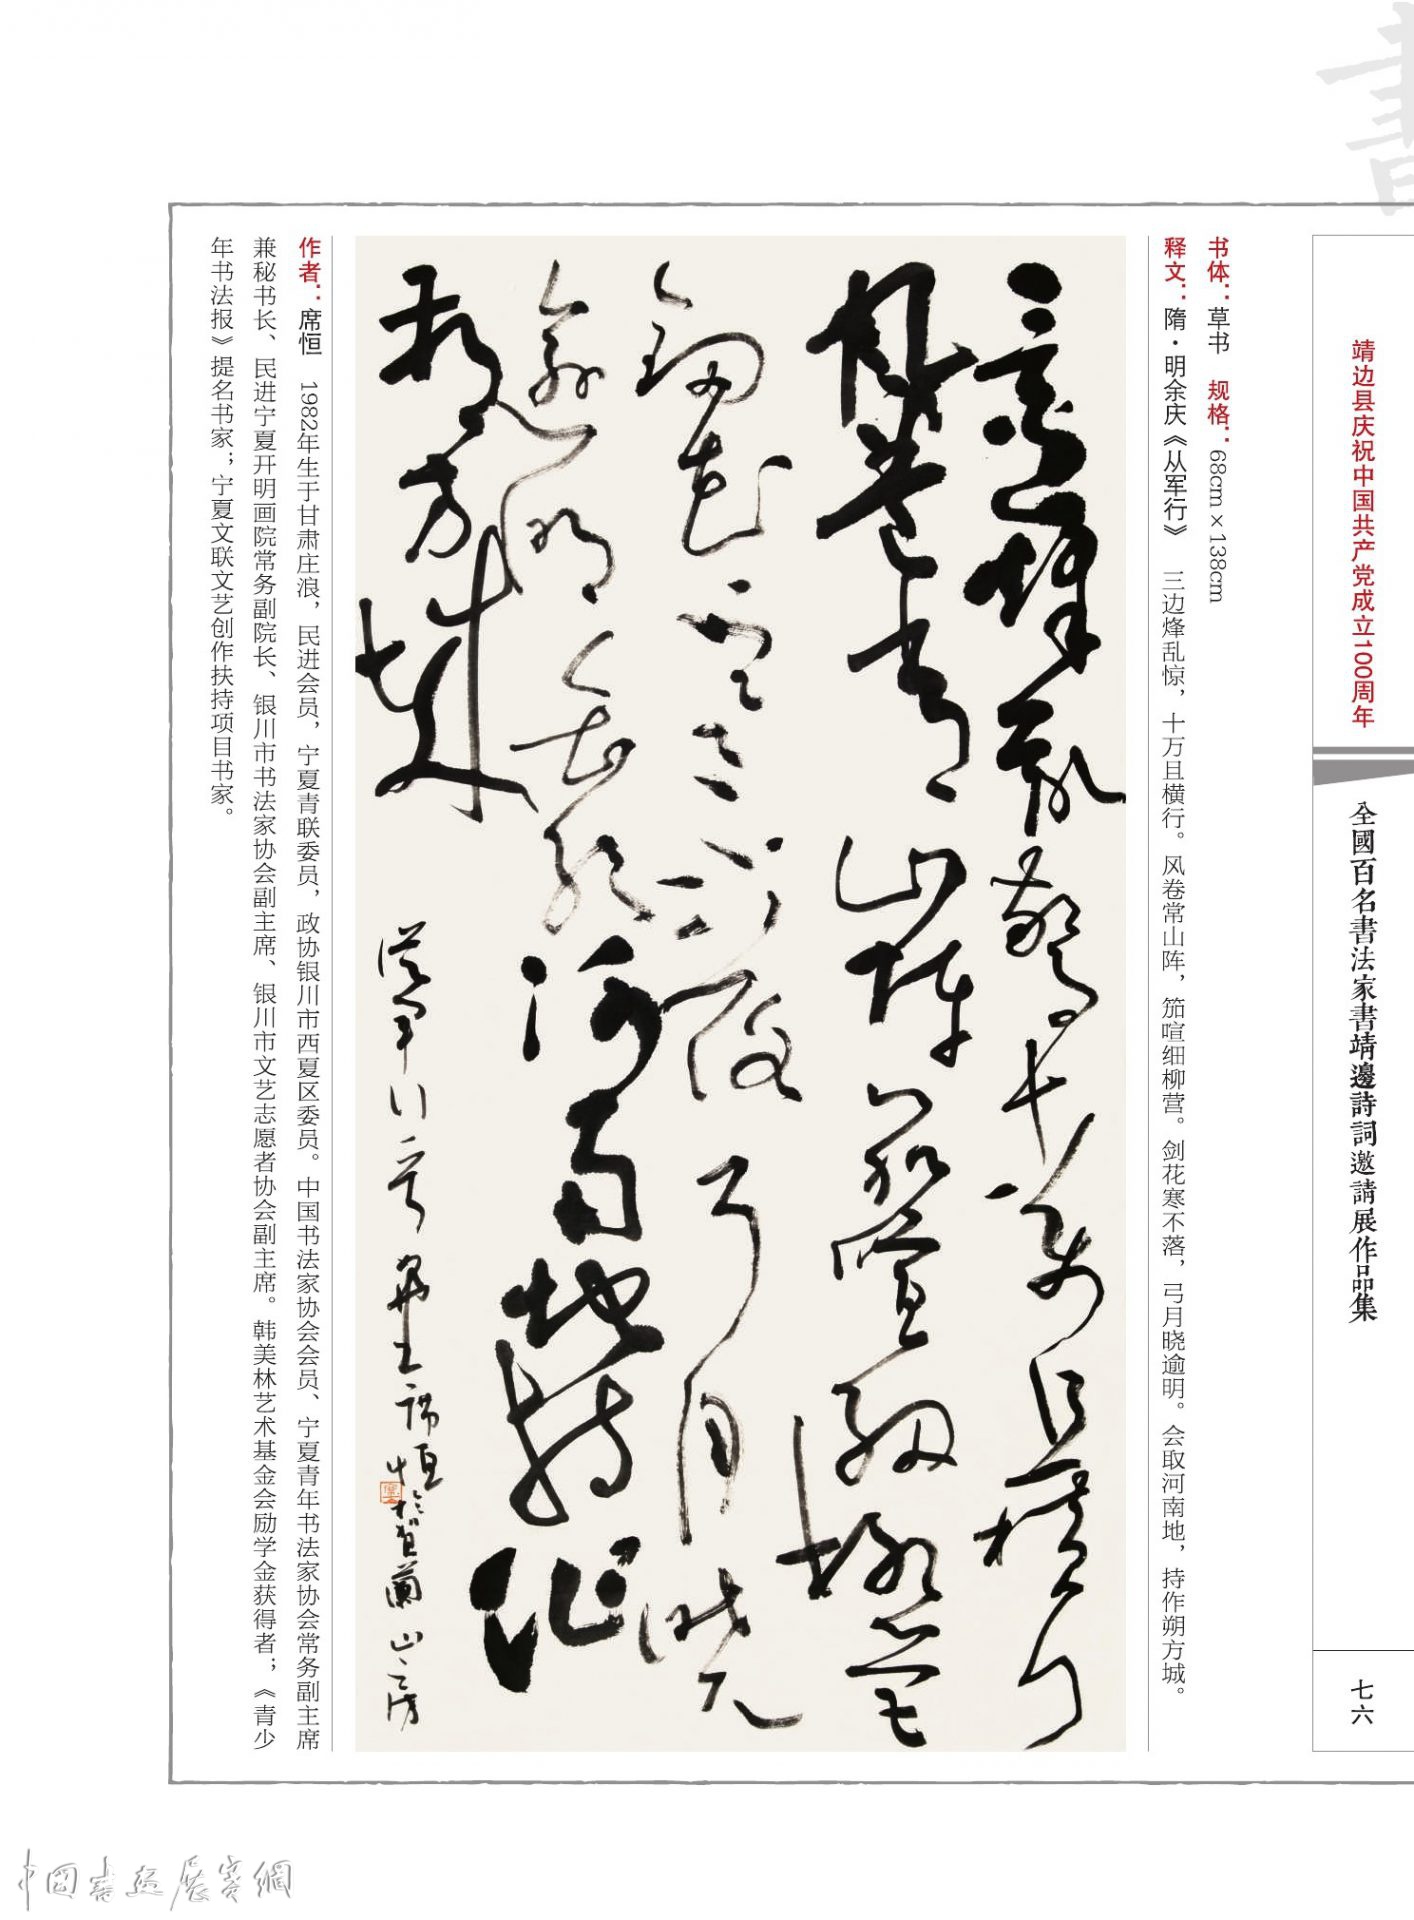 書
靖边县庆祝中国共产党成立100周年
全國百名書法家書靖邊詩詞邀請展作品集
七六
书体：草书 规格：68cm×138cm
释文：隋·明余庆《从军行》 三边烽乱惊，十万且横行。风卷常山阵，笳喧细柳营。剑花寒不落，弓月晓逾明。会取河南地，持作朔方城。
三邊烽亂驚十萬且橫行
風卷常山陣笳喧細柳營
劍花寒不落弓月曉
逾明會取河南地持作
朔方城
從軍行一首 席恒於賀蘭山房
作者：席恒 1982年生于甘肃庄浪，民进会员，宁夏青联委员，政协银川市西夏区委员。中国书法家协会会员、宁夏青年书法家协会常务副主席
兼秘书长、民进宁夏开明画院常务副院长、银川市书法家协会副主席、银川市文艺志愿者协会副主席。韩美林艺术基金会励学金获得者；《青少
年书法报》提名书家；宁夏文联文艺创作扶持项目书家。
中國書畫展賽網